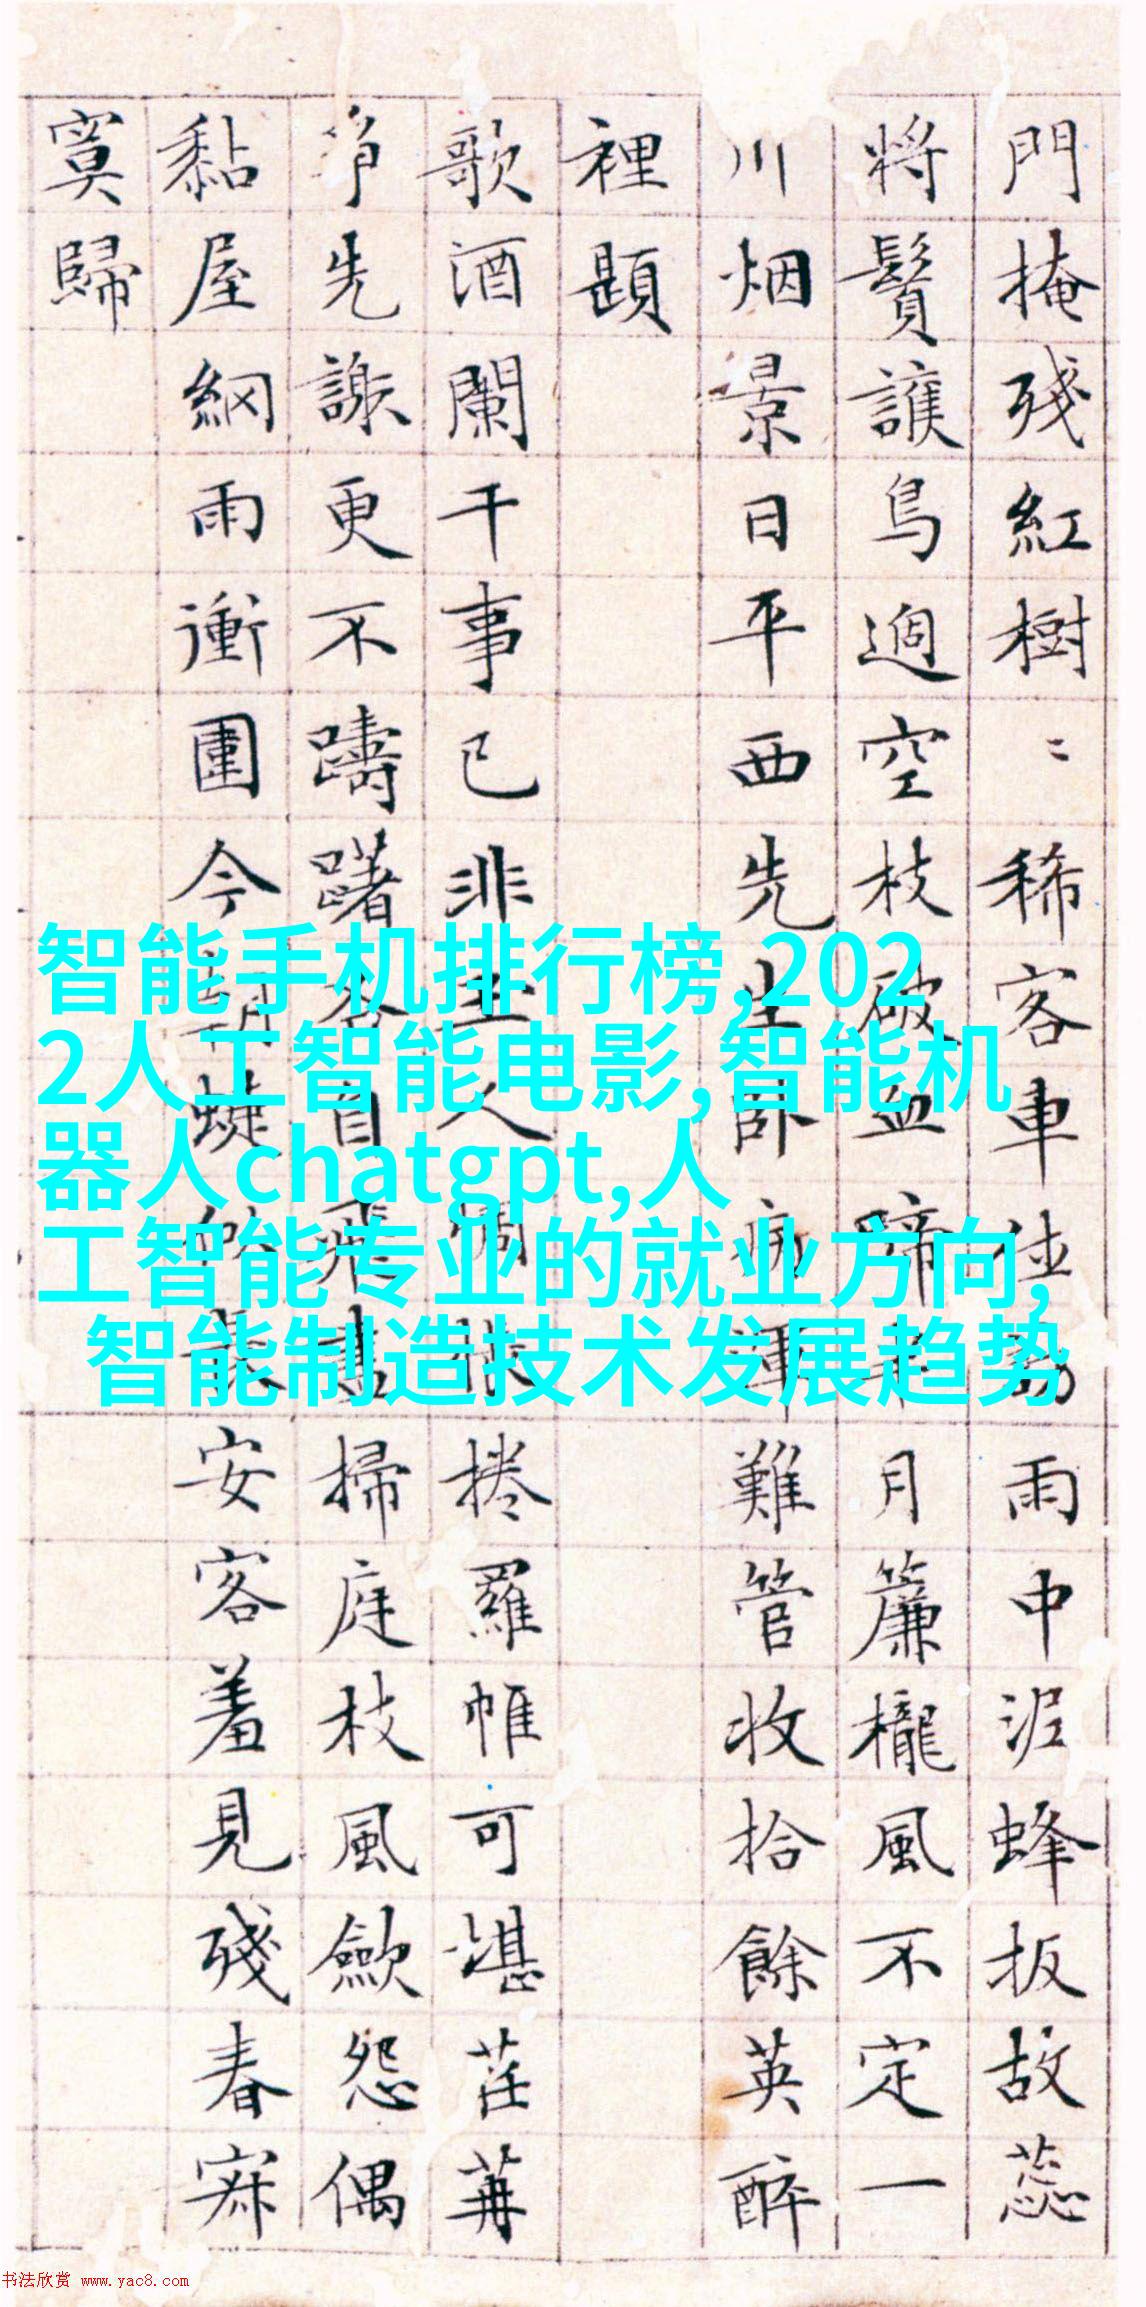 門掩殘紅樹〻稀客車雨中泥蜂扳故蕊
將鬚護鳥過空枝破血啼半月簾櫳風不定一
川烟景日平西先生臥病渾難管收拾餘英醉
裡題
歌酒闌干事已非人惆悵捲羅帷可堪荏苒
爭先謝更不躊躇各自飛盡掃庭枝風歛怨偶
黏屋網雨衝圍今朝蜨長安客羞見殘春寂
寞歸
智能手机排行榜,202
2人工智能电影,智能机
器人chatgpt,人
工智能专业的就业方向,
智能制造技术发展趋势
书法欣赏 www.yac8.com